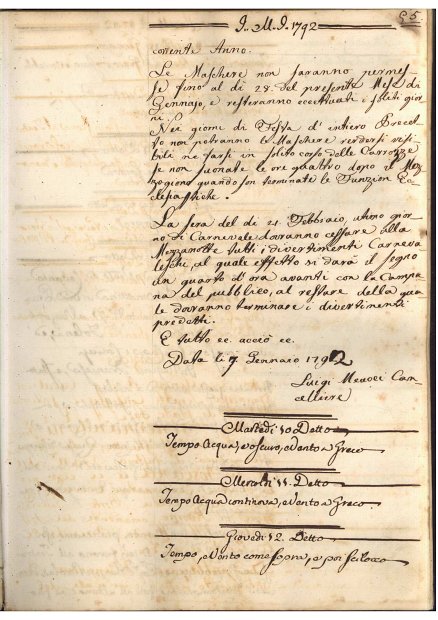 95.
J. M. J. 1792
corrente Anno.
Le Maschere non saranno permes-
se fino al di 28. del presente Mese di
Gennajo, e resteranno eccettuati i soliti gior
ni.
Nei giorni di Festa d'intiero Precet-
to non potranno le Maschere rendersi visi-
bili ne farsi in solito corso delle Carrozze
se non suonate le ore quattro dopo il Mez
zogiorno quando son terminate le Funzioni Ec
clesiastiche.
La sera del di 21. Febbraio, ultimo gior
no di Carnevale dovranno cessare alla
Mezzanotte tutti i divertimenti Carneva
leschi, al quale effetto si darà il segno
un quarto d'ora avanti con la Campa
na del pubblico, al restare della qua
le dovranno terminare i divertimenti
predetti.
E tutto ec. acciò ec.
Data li 7 Gennaro 1792
Luigi Can-
celliere
Martedi 10 Detto
Tempo Acqua, e oscuro, e Vento a Greco
Mercoldi 11. Detto
Tempo Acqua continova, e Vento a Greco.
Giovedi 12. Detto
Tempo, e Vento come sopra, e poi Scilocco